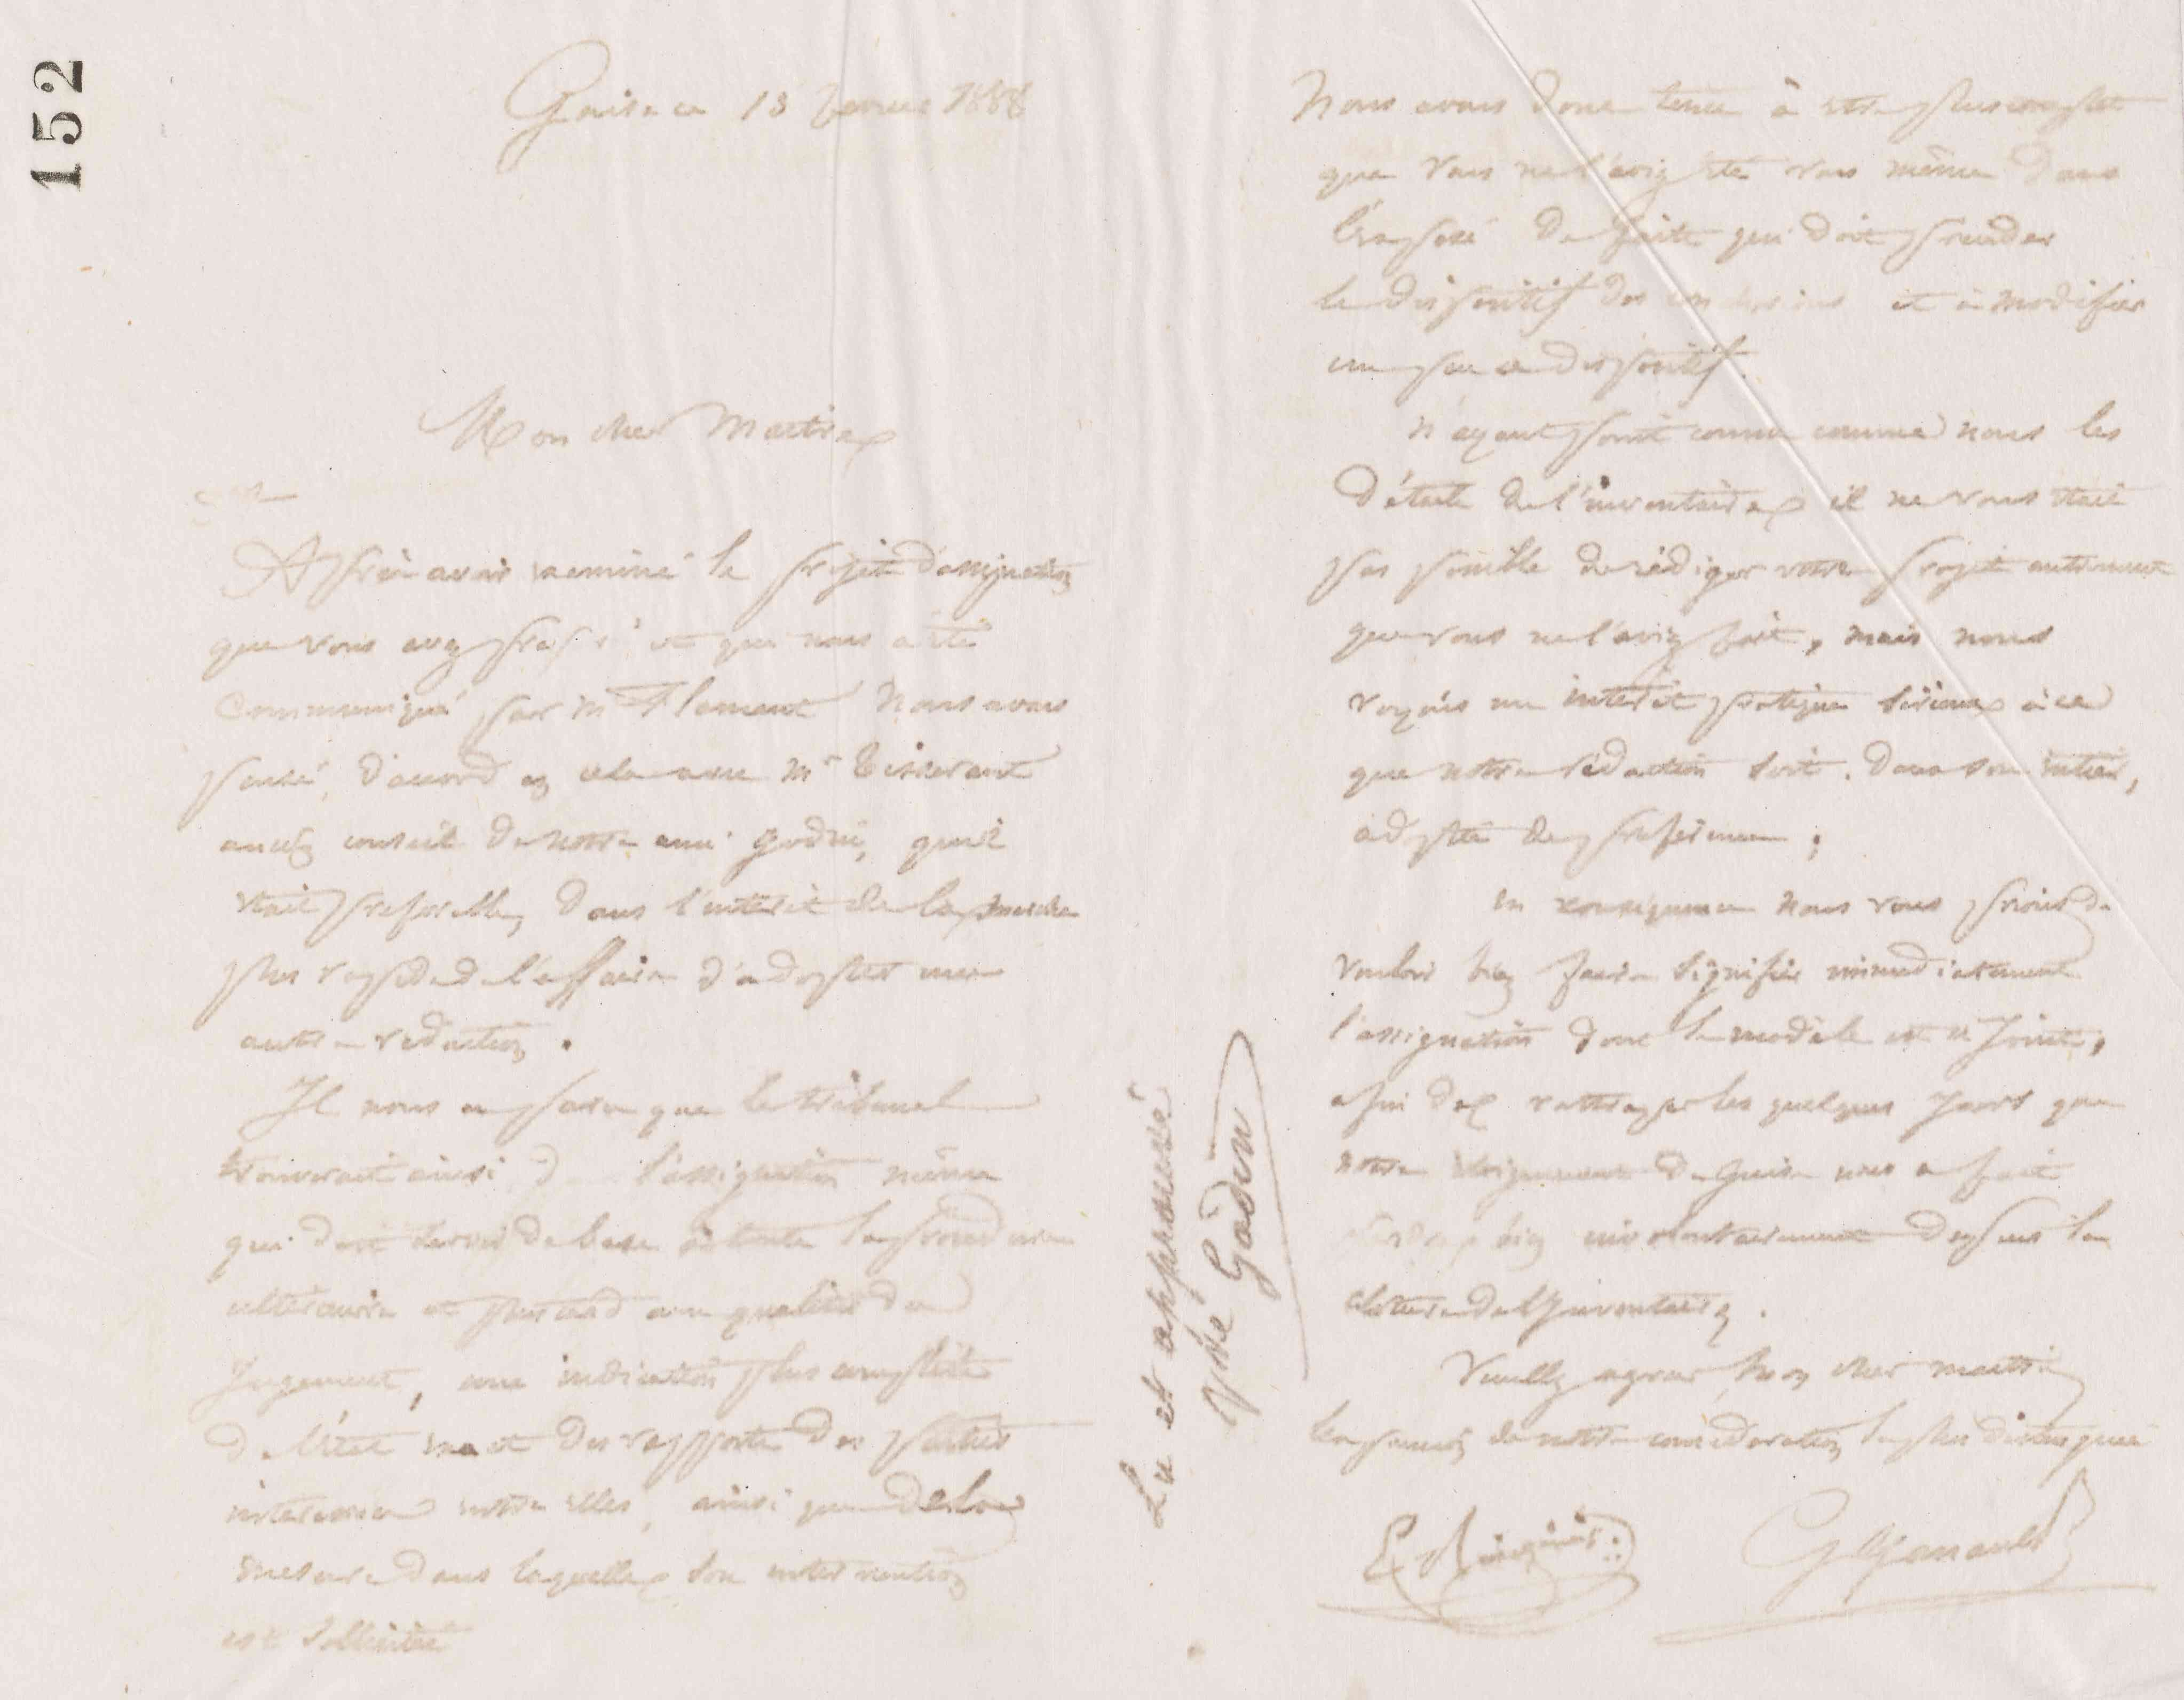 152
Guise ce 13 1888
Mon cher Maitre
Après avoir examiné le projet d'assignation
que vous avez préparé et qui nous a été
communiqué par Mr Flament nous avons
pensé, d'accord en cela avec Mr Tisserant
ancien conseil de notre ami Godin, qu'il
était préférable, dans l'intérêt de la marche
plus rapide de l'affaire d'adopter une
autre rédaction.
Il nous a paru que le tribunal
trouverait ainsi d l'assignation même
qui doit servir de base à toute la procédure
ultérieure et plus tard aux qualités du
Jugement, une indication plus complète
de l'état exact des rapports des parties
intéressées entre elles, ainsi que de la
mesure dans laquelle son intervention
est sollicitée
Lu et approuvé
Vve Godin
Nous avons donc tenu à être plus complet
que vous ne l'aviez été vous même dans
l'exposé de faits qui doit précéder
le dispositif des conclusions et à modifier
un peu ce dispositif.
N'ayant point connu comme nous les
détails de l'inventaire il ne vous était
pas possible de rédiger votre projet autrement
que vous ne l'aviez fait, mais nous
voyons un intérêt pratique sérieux à ce
que notre rédaction soit, dans son entier,
adoptée de préférence;
en conséquence nous vous prions de
vouloir bien faire signifier immédiatement
l'assignation dont le modèle est ci joint,
afin de rattraper les quelques jours que
notre éloignement de Guise nous a fait
perdre bien involontairement depuis la
clôture de l'inventaire.
Veuillez agréer mon cher maitre
l'expression de notre considération la plus distinguée